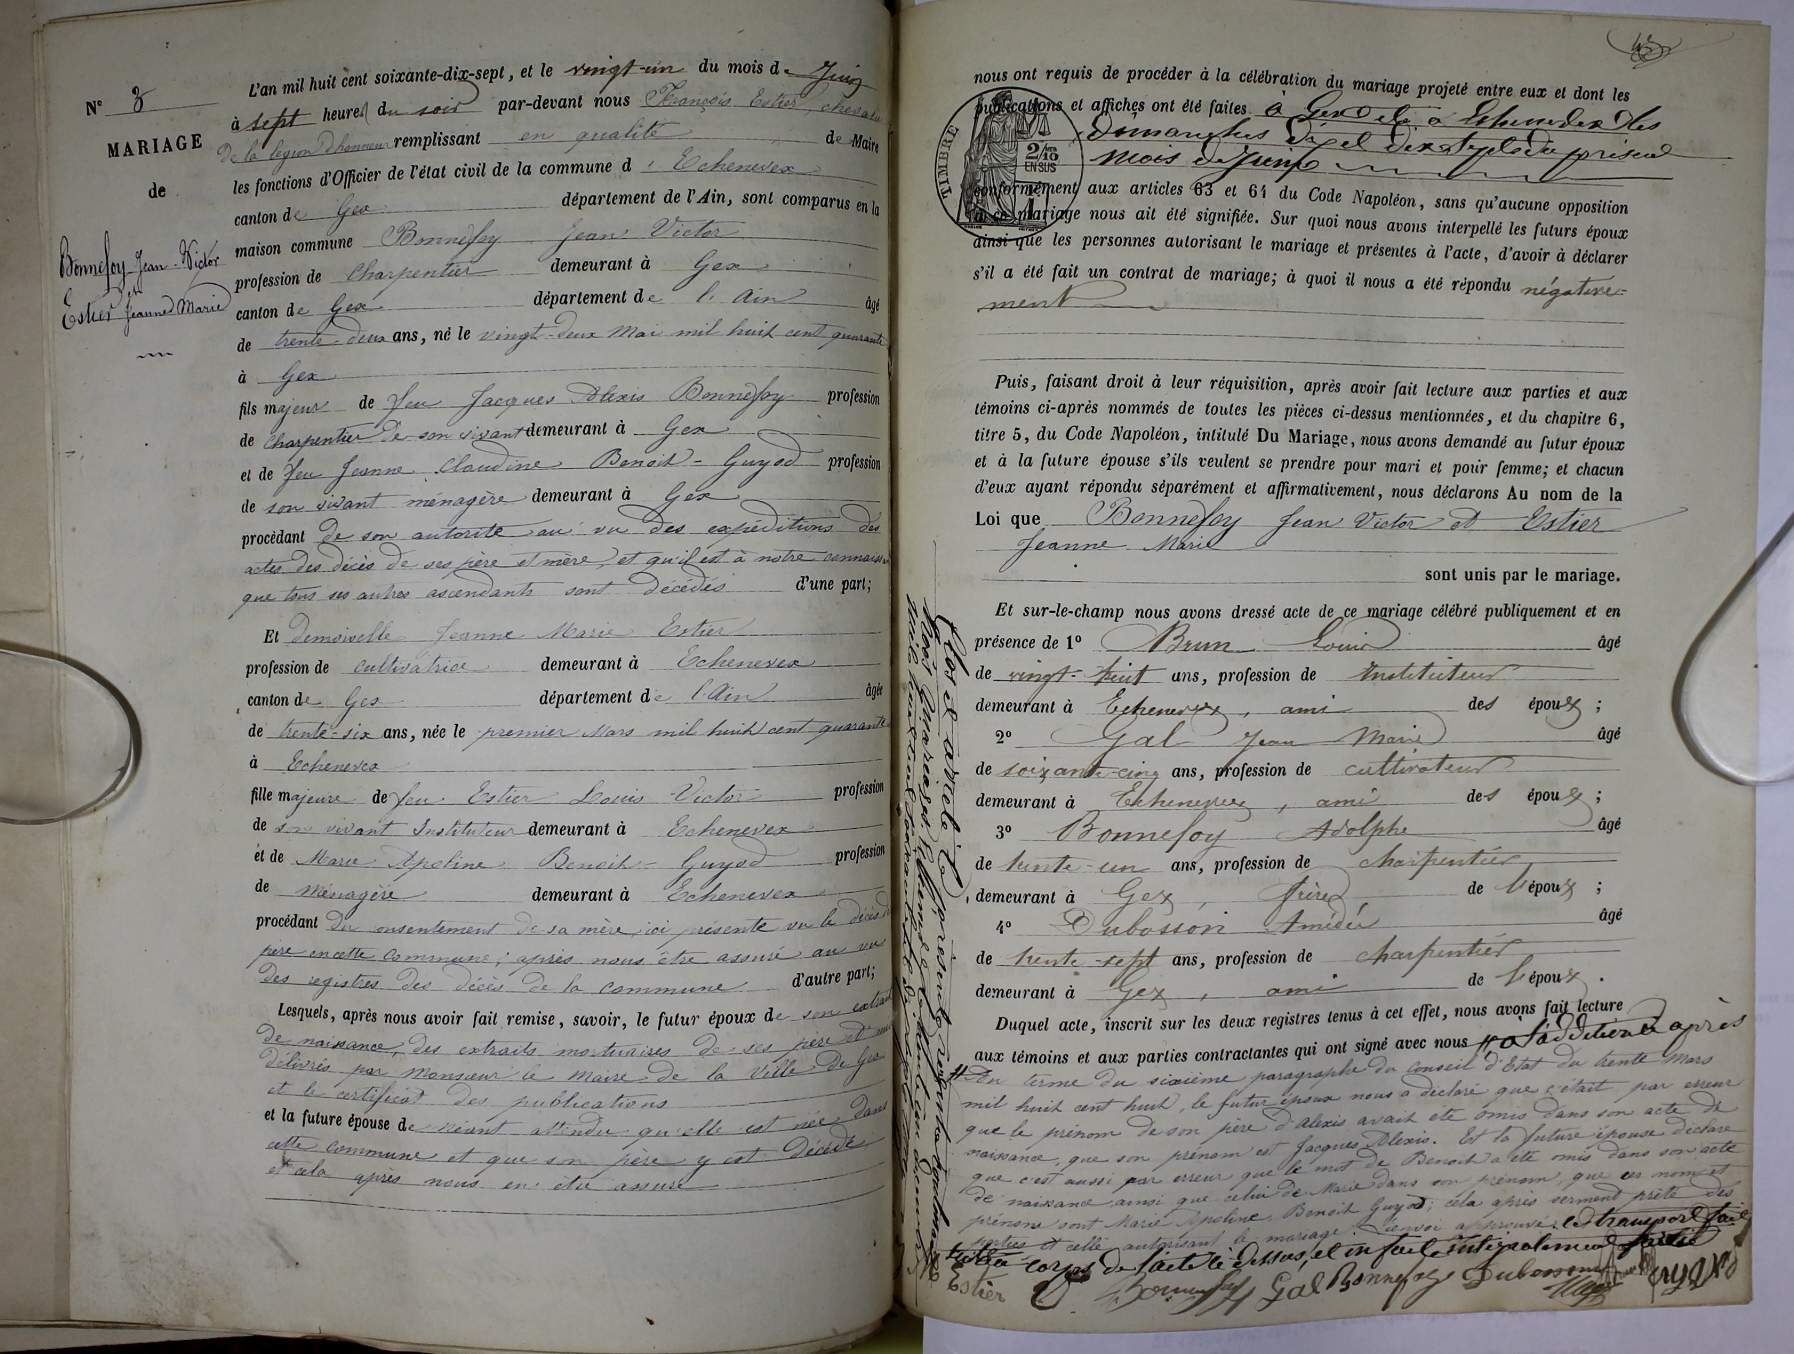 N° 8
MARIAGE
de
Bonnefoy Jean-Victor
et
Estier Jeanne Marie
L'an mil huit cent soixante-dix-sept, et le vingt-un du mois de Juin
à sept heures du soir par-devant nous François Estier, chevalier
de la légion d'honneur remplissant en qualité de Maire
les fonctions d'Officier de l'état civil de la commune d'Echenevex
canton de Gex département de l'Ain, sont comparus en la
maison commune Bonnefoy Jean Victor
profession de charpentier demeurant à Gex
canton de Gex département de l'Ain âgé
de trente-deux ans, né le vingt-deux Mai mil huit cent quarante
à Gex
fils majeur de feu Jacques Alexis Bonnefoy profession
de charpentier de son vivant demeurant à Gex
et de feu Jeanne Claudine Benoit-Guyod profession
de son vivant ménagère demeurant à Gex
procédant de son autorité au vu des expéditions des
actes des décès de ses père et mère, et qu'il est à notre connaiss
que tous ses autres ascendants sont décédés d'une part;
Et demoiselle Jeanne Marie Estier
profession de cultivatrice demeurant à Echenevex
canton de Gex département de l'Ain âgée
de trente-six ans, née le premier Mars mil huit cent quarante
à Echenevex
fille majeure de feu Estier Louis Victor profession
de son vivant Instituteur demeurant à Echenevex
et de Marie Apoline Benoit-Guyod profession
de Ménagère demeurant à Echenevex
procédant du consentement de sa mère, ici présente vu le décès du
père en cette commune; après nous être assuré au vu
des registres des décès de la commune d'autre part;
Lesquels, après nous avoir fait remise, savoir, le futur époux de son extrait
de naissance, des extraits mortuaires de ses père et
délivrés par Monsieur le Maire de la Ville de Gex
et le certificat des publications
et la future épouse de néant attendu qu'elle est née dans
cette commune et que son père y est décédé
et cela après nous en être assuré
nous ont requis de procéder à la célébration du mariage projeté entre eux et dont les
publications et affiches ont été faites à Gex et à Echenevex les
Dimanches dix et dix sept du présent
mois de Juin
TIMBRE
2/10
EN SUS
conformément aux articles 63 et 64 du Code Napoléon, sans qu'aucune opposition
à ce mariage nous ait été signifiée. Sur quoi nous avons interpellé les futurs époux
ainsi que les personnes autorisant le mariage et présentes à l'acte, d'avoir à déclarer
s'il a été fait un contrat de mariage; à quoi il nous a été répondu négative-
ment
Puis, faisant droit à leur réquisition, après avoir fait lecture aux parties et aux
témoins ci-après nommés de toutes les pièces ci-dessus mentionnées, et du chapitre 6,
titre 5, du Code Napoléon, intitulé Du Mariage, nous avons demandé au futur époux
et à la future épouse s'ils veulent se prendre pour mari et pour femme; et chacun
d'eux ayant répondu séparément et affirmativement, nous déclarons Au nom de la
Loi que Bonnefoy Jean Victor et Estier
Jeanne Marie
sont unis par le mariage.
Et sur-le-champ nous avons dressé acte de ce mariage célébré publiquement et en
présence de 1° Brun Louis âgé
de vingt-huit ans, profession de Instituteur
demeurant à Echenevex, ami des époux;
2° Gal Jean Marie âgé
de soixante-cinq ans, profession de cultivateur
demeurant à Echenevex, ami des époux;
3° Bonnefoy Adolphe âgé
de trente-un ans, profession de charpentier
demeurant à Gex, frère de l'époux;
4° Dubosson Amédée âgé
de trente-sept ans, profession de charpentier
demeurant à Gex, ami de l'époux.
Duquel acte, inscrit sur les deux registres tenus à cet effet, nous avons fait lecture
aux témoins et aux parties contractantes qui ont signé avec nous après
En terme du sixième paragraphe du Conseil d'Etat du trente Mars
mil huit cent huit, le futur époux nous a déclaré que c'était par erreur
que le prénom de son père d'Alexis avait été omis dans son acte de
naissance, que son prénom est Jacques Alexis. Et la future épouse déclare
que c'est aussi par erreur que le mot de Benoit a été omis dans son acte
de naissance ainsi que celui de Marie dans son prénom, que ces noms et
prénoms sont Marie Apoline Benoit Guyod; cela après serment prêté des
parties et celle autorisant le mariage. Renvoi approuvé.
corps de l'acte ci dessus, et en fait intégralement partie
Estier Bonnefoy Gal Bonnefoy Dubosson
Clos et arrêté le présent registre